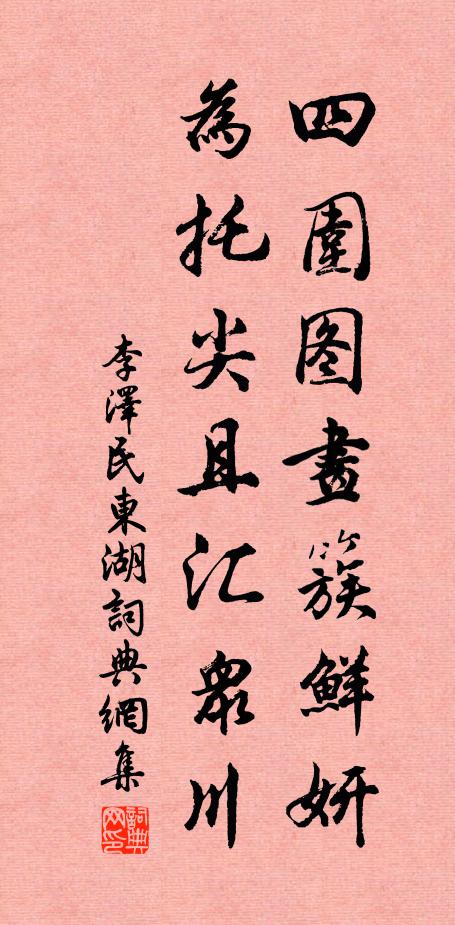 四圍图畫簇鮮妍
為托尖且汇衆川
李澤民東湖詞典網集
詞典网印